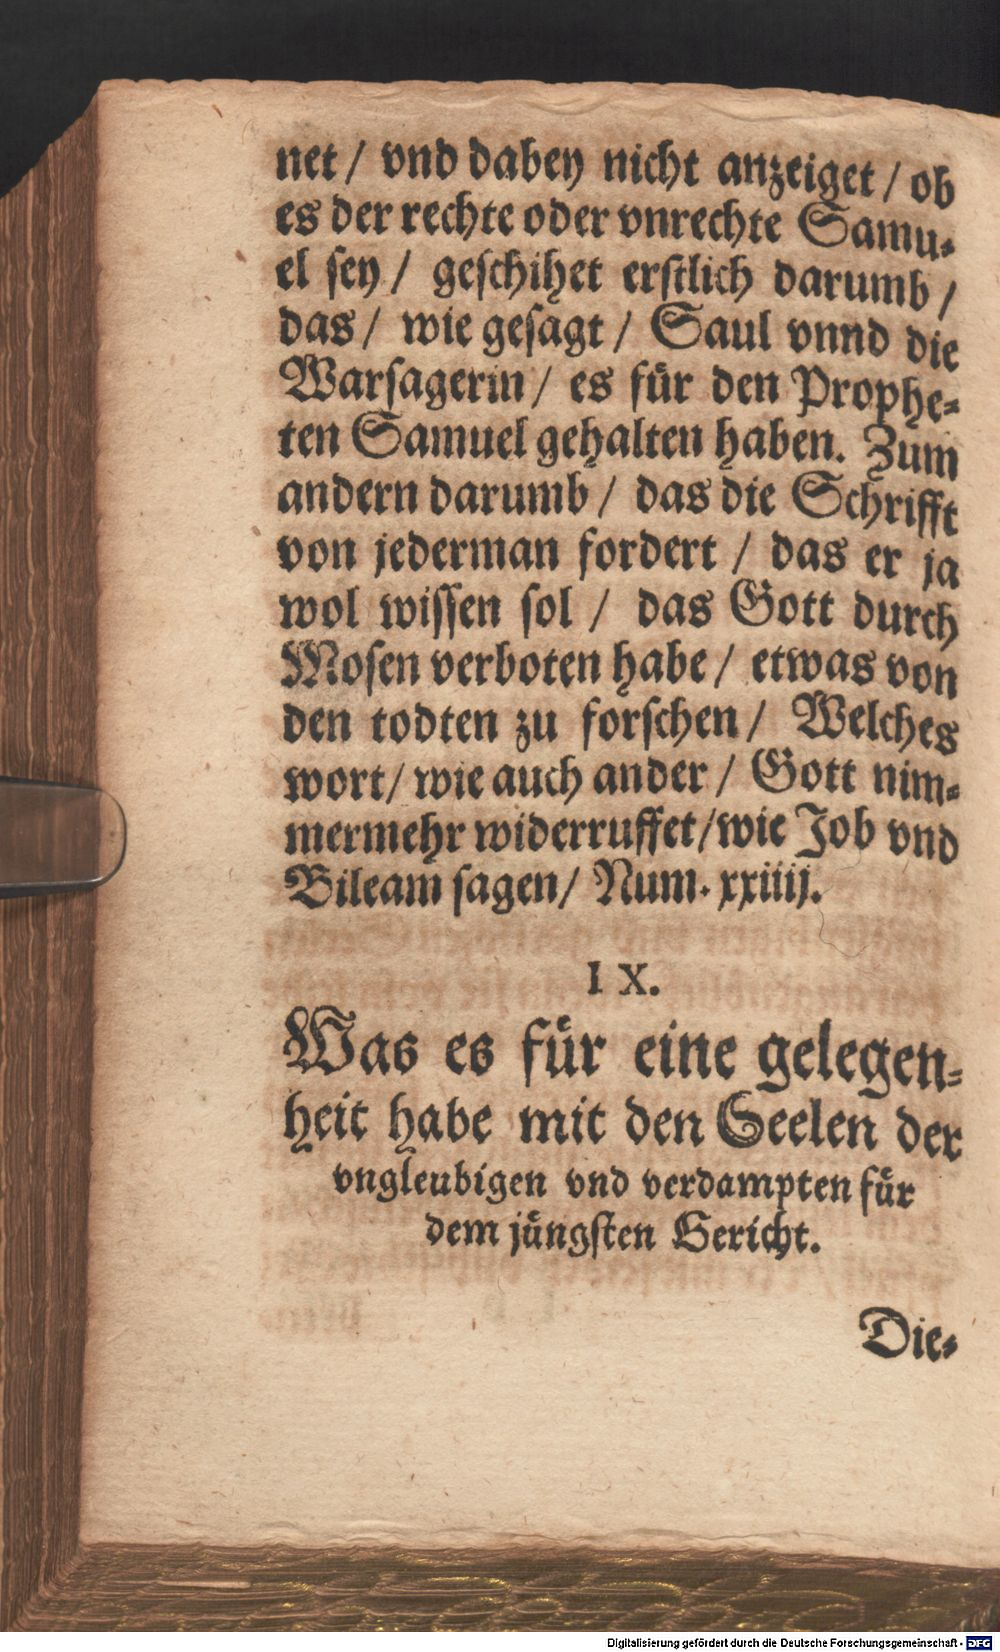 net / vnd dabey nicht anzeiget / ob
es der rechte oder vnrechte Samu⸗
el sey / geschihet erstlich darumb /
das / wie gesagt / Saul vnnd die
Warsagerin / es für den Prophe⸗
ten Samuel gehalten haben. Zum
andern darumb / das die Schrifft
von jederman fordert / das er ja
wol wissen sol / das Gott durch
Mosen verboten habe / etwas von
den todten zu forschen / Welches
wort / wie auch ander / Gott nim⸗
mermehr widerruffet / wie Job vnd
Bileam sagen / Num. xxiiij.
IX.
Was es für eine gelegen⸗
heit habe mit den Seelen der
vngleubigen vnd verdampten für
dem jüngsten Gericht.
Die⸗
Digitalisierung gefördert durch die Deutsche Forschungsgemeinschaft - DFG